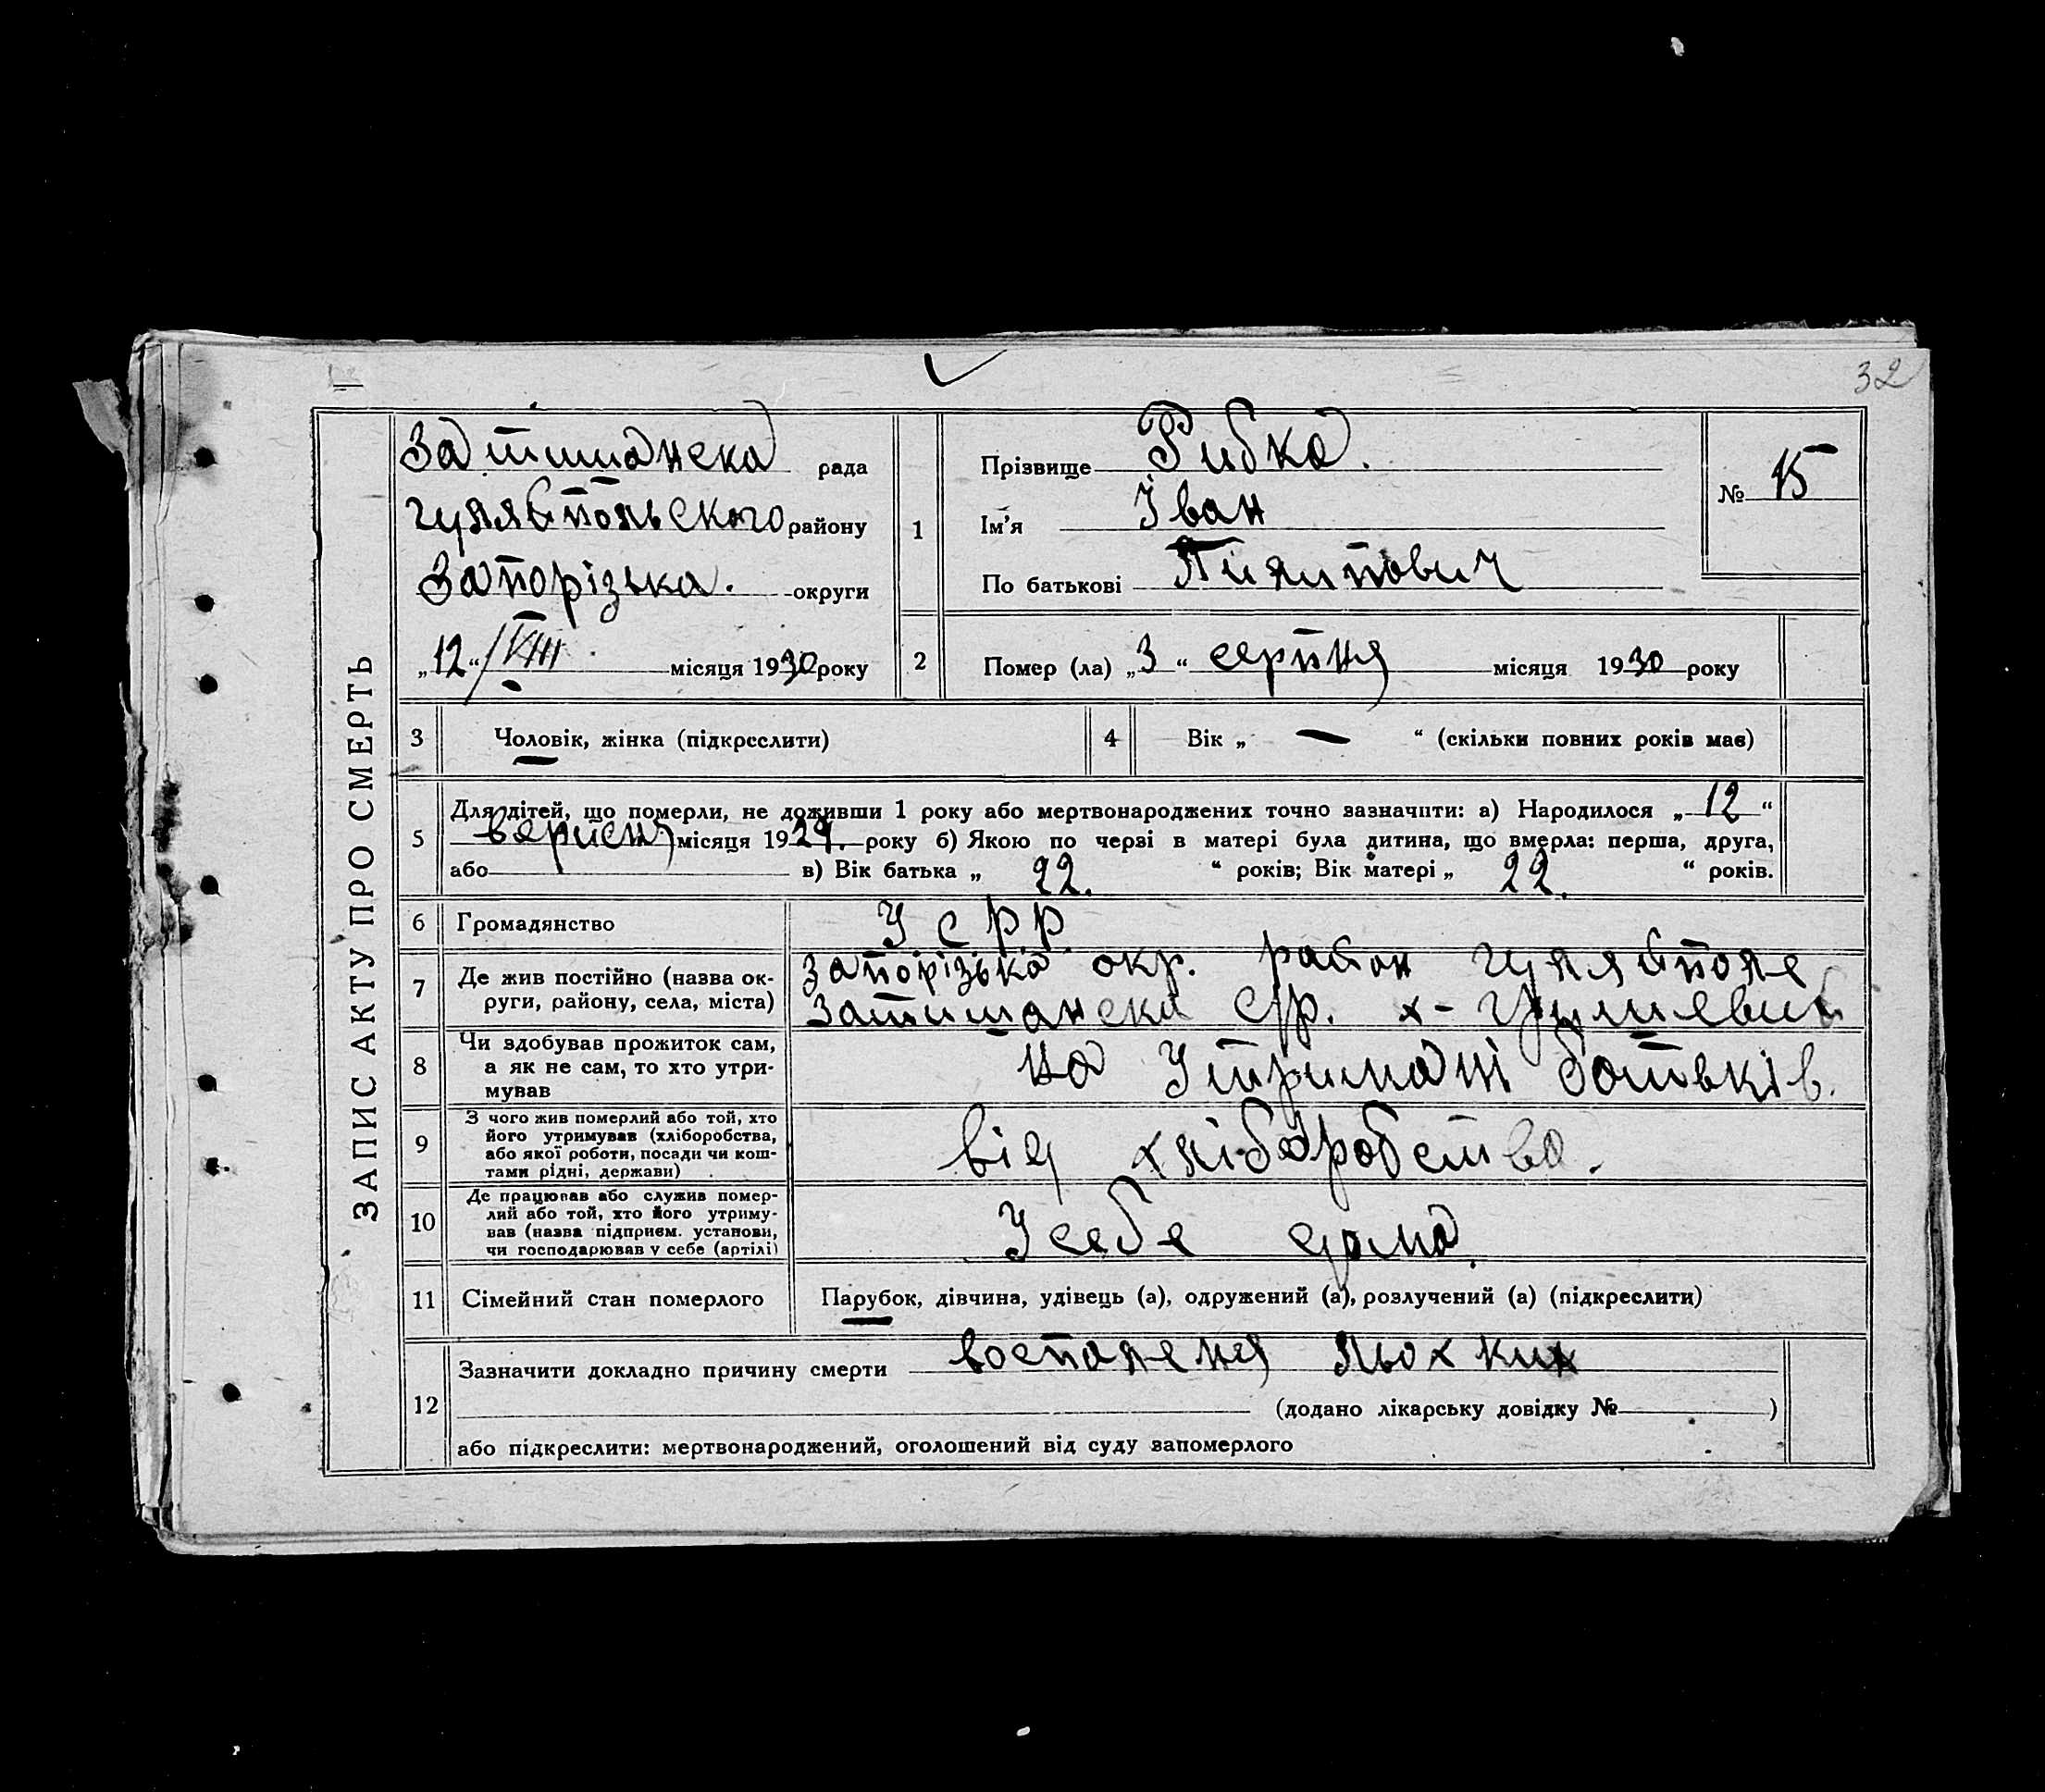 32
ЗАПИС АКТУ ПРО СМЕРТЬ
Затишанска рада
Гуляйпольского району
Запорізька. округи
„12“/VIII місяця 1930 року
1
Прізвище Рибка.
Ім’я Іван
По батькові Пилипович
№ 15
2
Помер (ла) „3“ серпня місяця 1930 року
3 Чоловік, жінка (підкреслити)
4 Вік „ — “ (скільки повних років має)
5 Для дітей, що померли, не доживши 1 року або мертвонароджених точно зазначити: а) Народилося „12“
верисня місяця 1929. року б) Якою по черзі в матері була дитина, що вмерла: перша, друга,
або в) Вік батька „ 22. “ років; Вік матері „ 22. “ років.
6 Громадянство УСРР
7 Де жив постійно (назва ок-
руги, району, села, міста)
Запорізька окр. район Гуляйполе
Затишанска с/р. х-
8 Чи здобував прожиток сам,
а як не сам, то хто утри-
мував
на Утримані батьків.
9 З чого жив померлий або той, хто
його утримував (хліборобства,
або якої роботи, посади чи кош-
тами рідні, держави)
від хліборобства.
10 Де працював або служив помер-
лий або той, хто його утриму-
вав (назва підприєм. установи,
чи господарював у себе (артілі)
У себе дома.
11 Сімейний стан померлого Парубок, дівчина, удівець (а), одружений (а), розлучений (а) (підкреслити)
12 Зазначити докладно причину смерти воспаленя льохких
(додано лікарську довідку № )
або підкреслити: мертвонароджений, оголошений від суду запомерлого